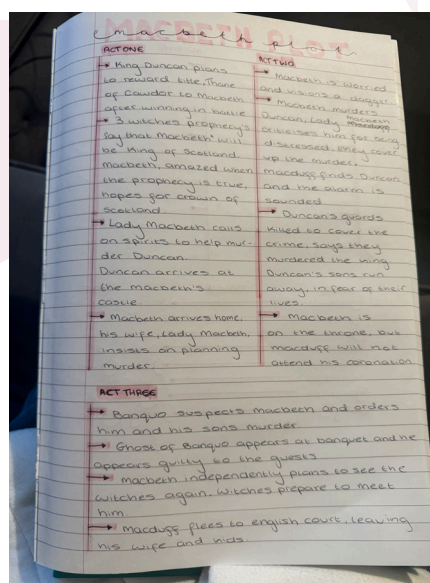 macbeth plot
ACT ONE
→ King Duncan plans
to reward title, Thane
of Cawdor to Macbeth
after winning in battle
→ 3 witches prophecy's
say that Macbeth will
be King of Scotland.
macbeth, amazed when
the prophecy is true,
hopes for crown of
scotland
→ Lady Macbeth calls
on spirits to help mur-
der Duncan.
Duncan arrives at
the macbeth's
castle
→ Macbeth arrives home,
his wife, Lady Macbeth,
insists on planning
murder.
ACT TWO
→ Macbeth is worried
and visions a dagger
→ Macbeth murders
Duncan, Lady Macbeth
criticises him for being
distressed, they cover
up the murder.
macduff finds Duncan
and the alarm is
sounded
→ Duncan's guards
killed to cover the
crime, says they
murdered the king
Duncan's sons run
away, in fear of their
lives.
→ Macbeth is
on the throne, but
macduff will not
attend his coronation
ACT THREE
→ Banquo suspects macbeth and orders
him and his sons murder
→ Ghost of Banquo appears at banquet and he
appears guilty to the guests
→ macbeth independently plans to see the
witches again. witches prepare to meet
him.
→ macduff flees to english court, leaving
his wife and kids.